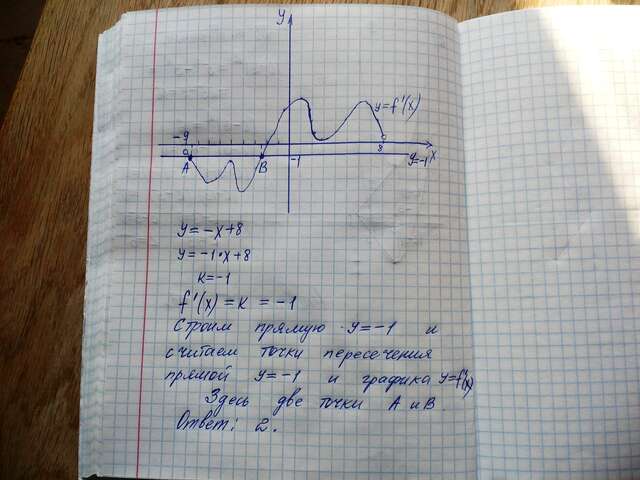 y
y=f'(x)
-9
8
x
A
B
-1
y=-1
y=-x+8
y=-1·x+8
k=-1
f'(x)=k=-1
Строим прямую y=-1 и
считаем точки пересечения
прямой y=-1 и графика y=f'(x)
Здесь две точки A и B.
Ответ: 2.